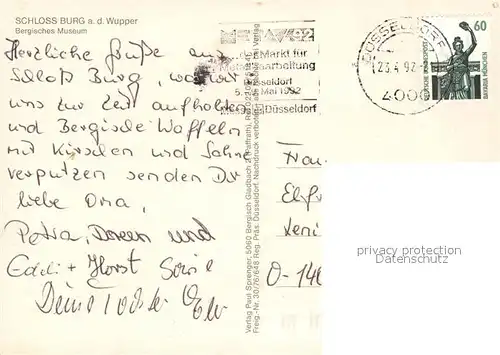 SCHLOSS BURG a. d. Wupper
Bergisches Museum
Herzliche Grüße aus
Schloß Burg wo wir
uns zur Zeit aufhalten
und Bergische Waffeln
mit Kirschen und Sahne
verputzen senden Dir
liebe Oma,
Petra, Doreen und
Eddi + Horst sowie
Deine Tochter
Markt für
arbeitung
Düsseldorf
Mai 1992
Düsseldorf
DÜSSELDORF
23.4.92
4000
60
DEUTSCHE BUNDESPOST
BAVARIA MÜNCHEN
Verlag Paul Sprenger, 5060 Bergisch Gladbach 2
Freig.-Nr. 30/76/648 Reg. Präs. Düsseldorf. Nachdruck verboten
Frau
O-14
privacy protection
Datenschutz